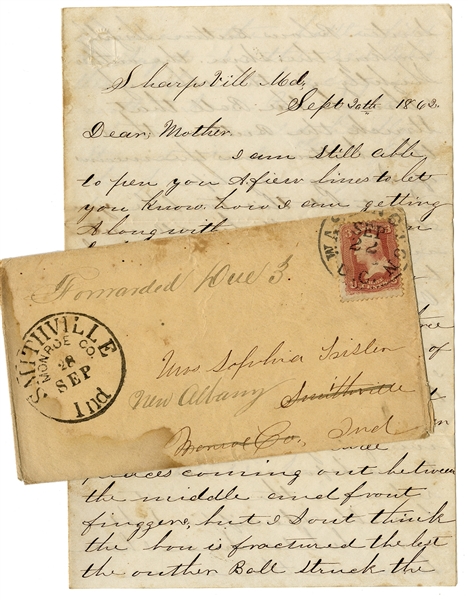 Sharpsvill Md,
Sept 20th 1862
Dear, Mother
I am still able
to pen you A few lines to let
you know how I am getting
Along with
Forwarded Due 3.
WASHINGTON
SEP
D.C.
SMITHVILLE
MONROE CO.
28
SEP
Ind
Mrs Sophia
New Albany Smithville
Monroe Co, Ind
of
coming out between
the middle and front
finggers, but I dont think
the bon is fractured the lest
the outher Ball struck the